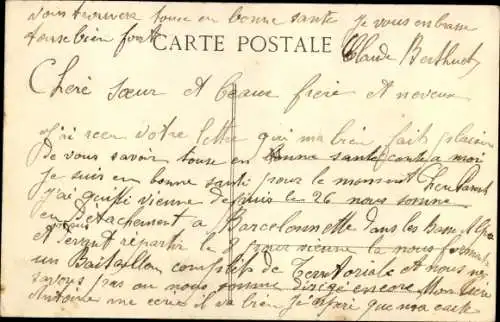 vous trouvera touse en bonne santé Je vous embrasse
touse bien fort
CARTE POSTALE
Claude Berthuet
Chère sœur et beaux frère et neveux
j'ai reçu votre lettre qui ma bien fait plaisir
de vous savoir touse en bonne santé conte a moi
Je suis en bonne santé pour le moment
j'ai quitté vienne depuis le 26 nous somme
en Détachement a Barcelonnette dans les Basse Alpes
et devont repartir le 8 pour vienne la nous formont
un Bataillon complets de Territoriale et nous ne
savons pas ou nous somme dirigé encore Mon frère
Antoine me ecrie il va bien J'espère que ma carte